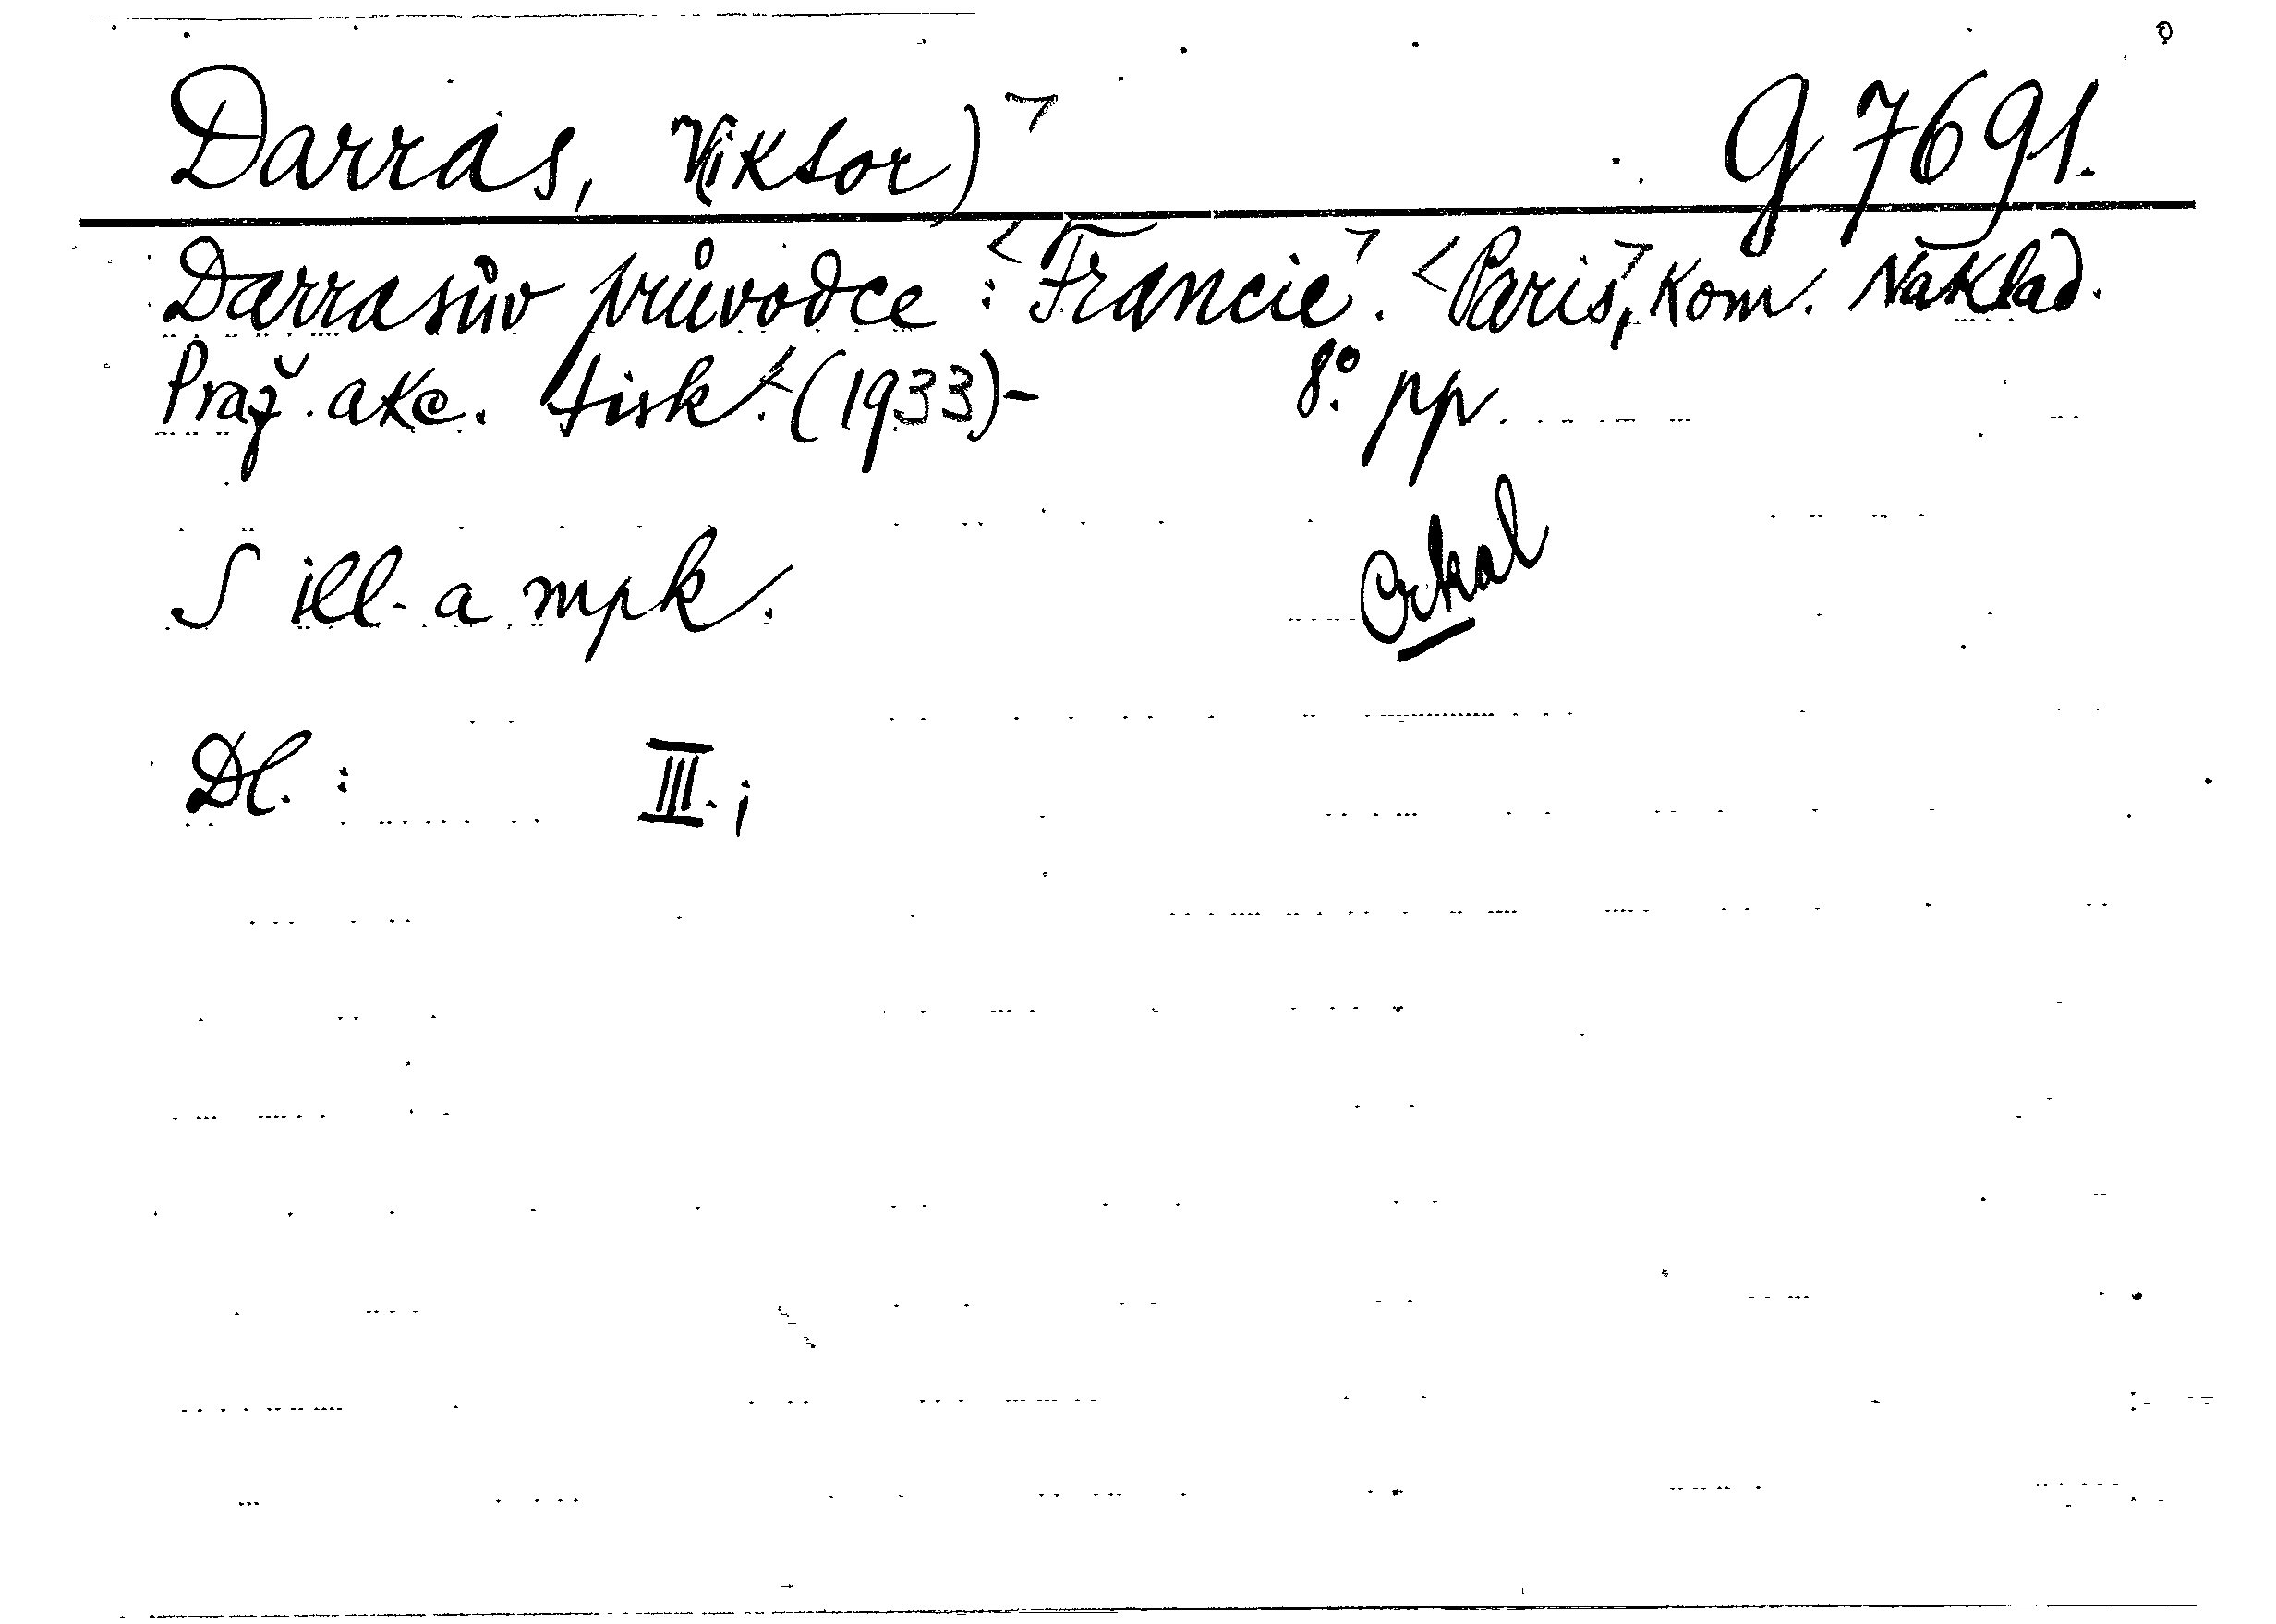 Darras, Viktor) G 7691.
Darrasův průvodce : <Francie>. <Paris>, Kom. Náklad.
Praž. akc. tisk. (1933)- 8° pp.
S ill. a mpk.
Dl. : III. ;